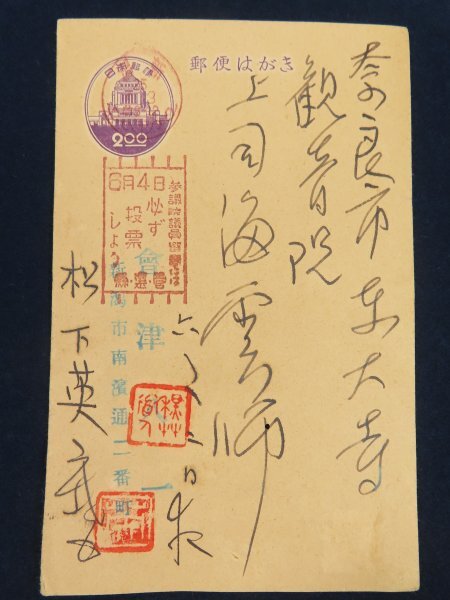 郵便はがき
日本郵便
2.00
奈良市東大寺
観音院
上司海雲師
参議院議員選挙は
6月4日
必ず
投票
しよう
會津
新潟市南濱通二番町
六月二日夜
松下英